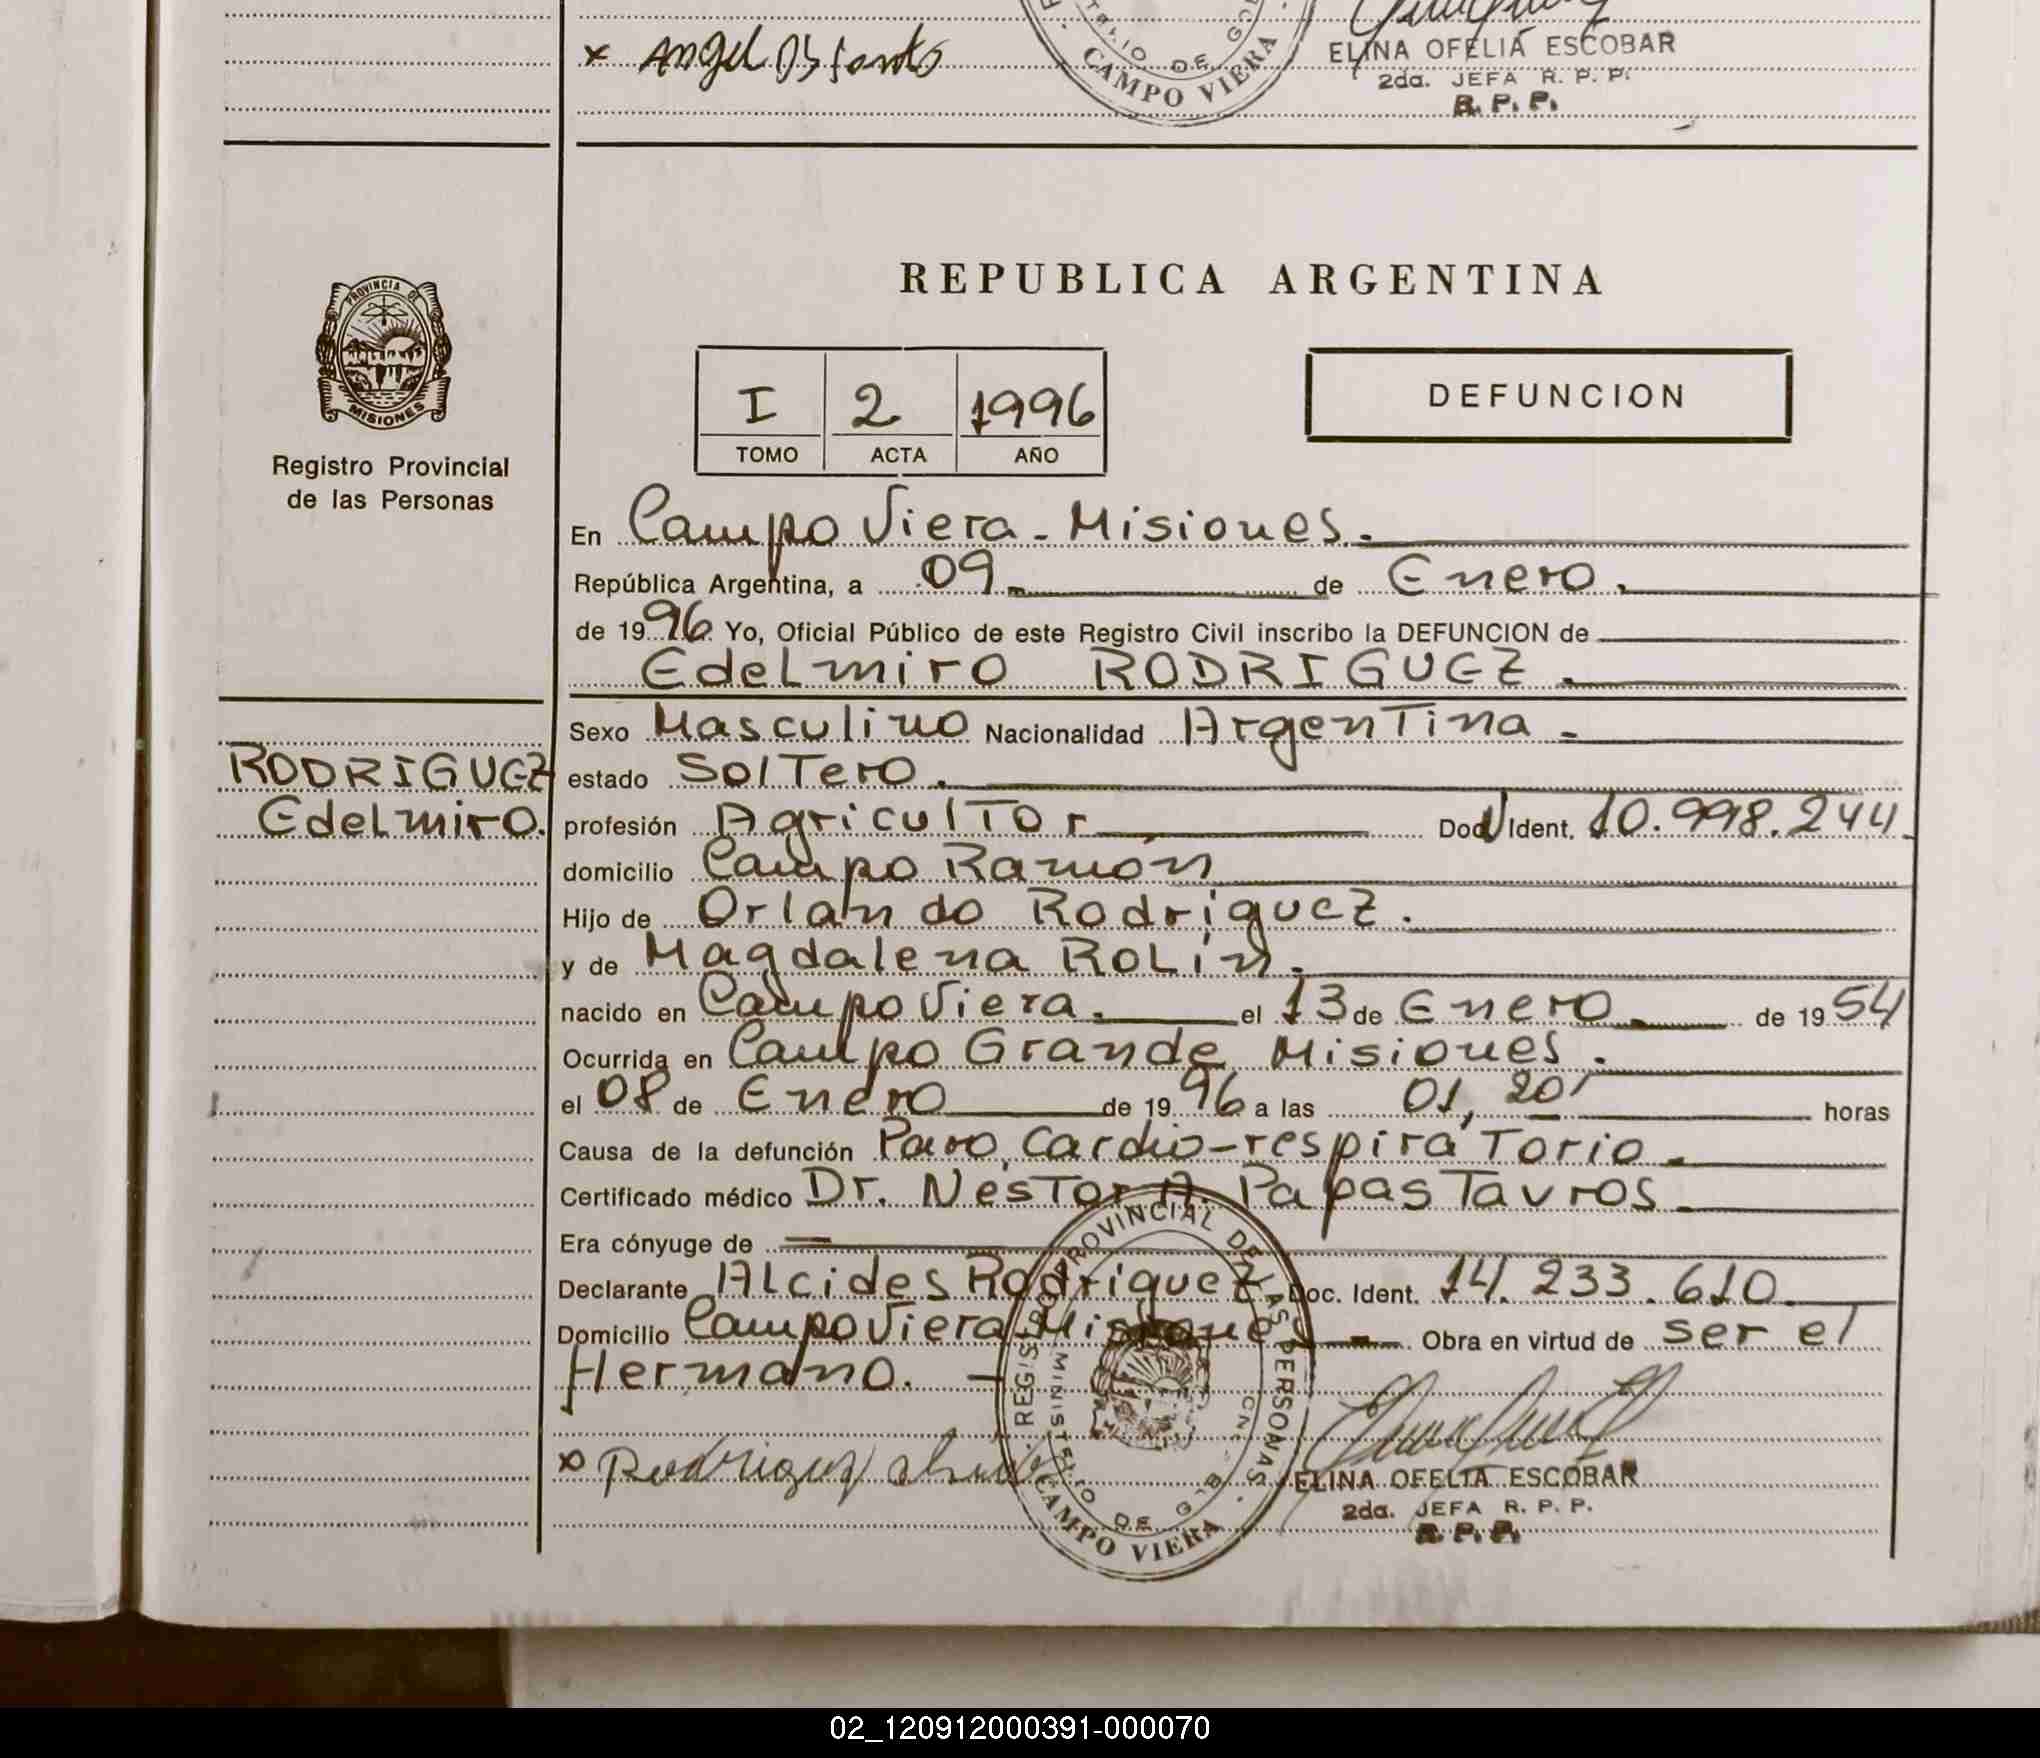 x Angel
CAMPO VIERA
ELINA OFELIA ESCOBAR
2da. JEFA R. P. P.
R. P. P.
PROVINCIA DE
MISIONES
Registro Provincial
de las Personas
REPUBLICA ARGENTINA
I 2 1996
TOMO ACTA AÑO
DEFUNCION
En Campo Viera - Misiones.
República Argentina, a 09 de Enero.
de 1996 Yo, Oficial Público de este Registro Civil inscribo la DEFUNCION de
Edelmiro RODRIGUEZ.
RODRIGUEZ
Edelmiro.
Sexo Masculino Nacionalidad Argentina
estado Soltero.
profesión Agricultor Doc. Ident. 10.998.244
domicilio Campo Ramón
Hijo de Orlando Rodriguez.
y de Magdalena Rolín.
nacido en Campo Viera. el 13 de Enero de 1954
Ocurrida en Campo Grande Misiones.
el 08 de Enero de 1996 a las 01,20' horas
Causa de la defunción Paro Cardio-respiratorio.
Certificado médico Dr. Nestor A. Papastavros
Era cónyuge de —
Declarante Alcides Rodriguez Doc. Ident. 14.233.610
Domicilio Campo Viera-Misiones Obra en virtud de ser el
Hermano. —
x Rodriguez
REGISTRO PROVINCIAL DE LAS PERSONAS
MINISTERIO DE GOB
CAMPO VIERA
ELINA OFELIA ESCOBAR
2da. JEFA R. P. P.
R. P. P.
02_120912000391-000070